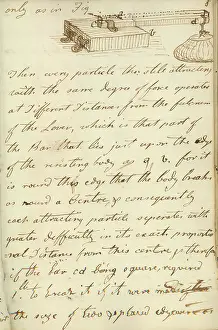 only as in Fig
8
Then every particle then still attracting
with the same degree of force operates
at Different Distances from the fulcrum
of the Lever, which is that part of
the Bar that lies just upon the edge
of the resisting body go q. v. for it
is round this edge that the body breaks
as round a Centre, & consequently
each attracting particle operates with
greater difficulty in its exact proportio
nal Distance from this centre, & therefore
if the bar cd being square, required
to break it if it were made
the size of two & placed edgeways